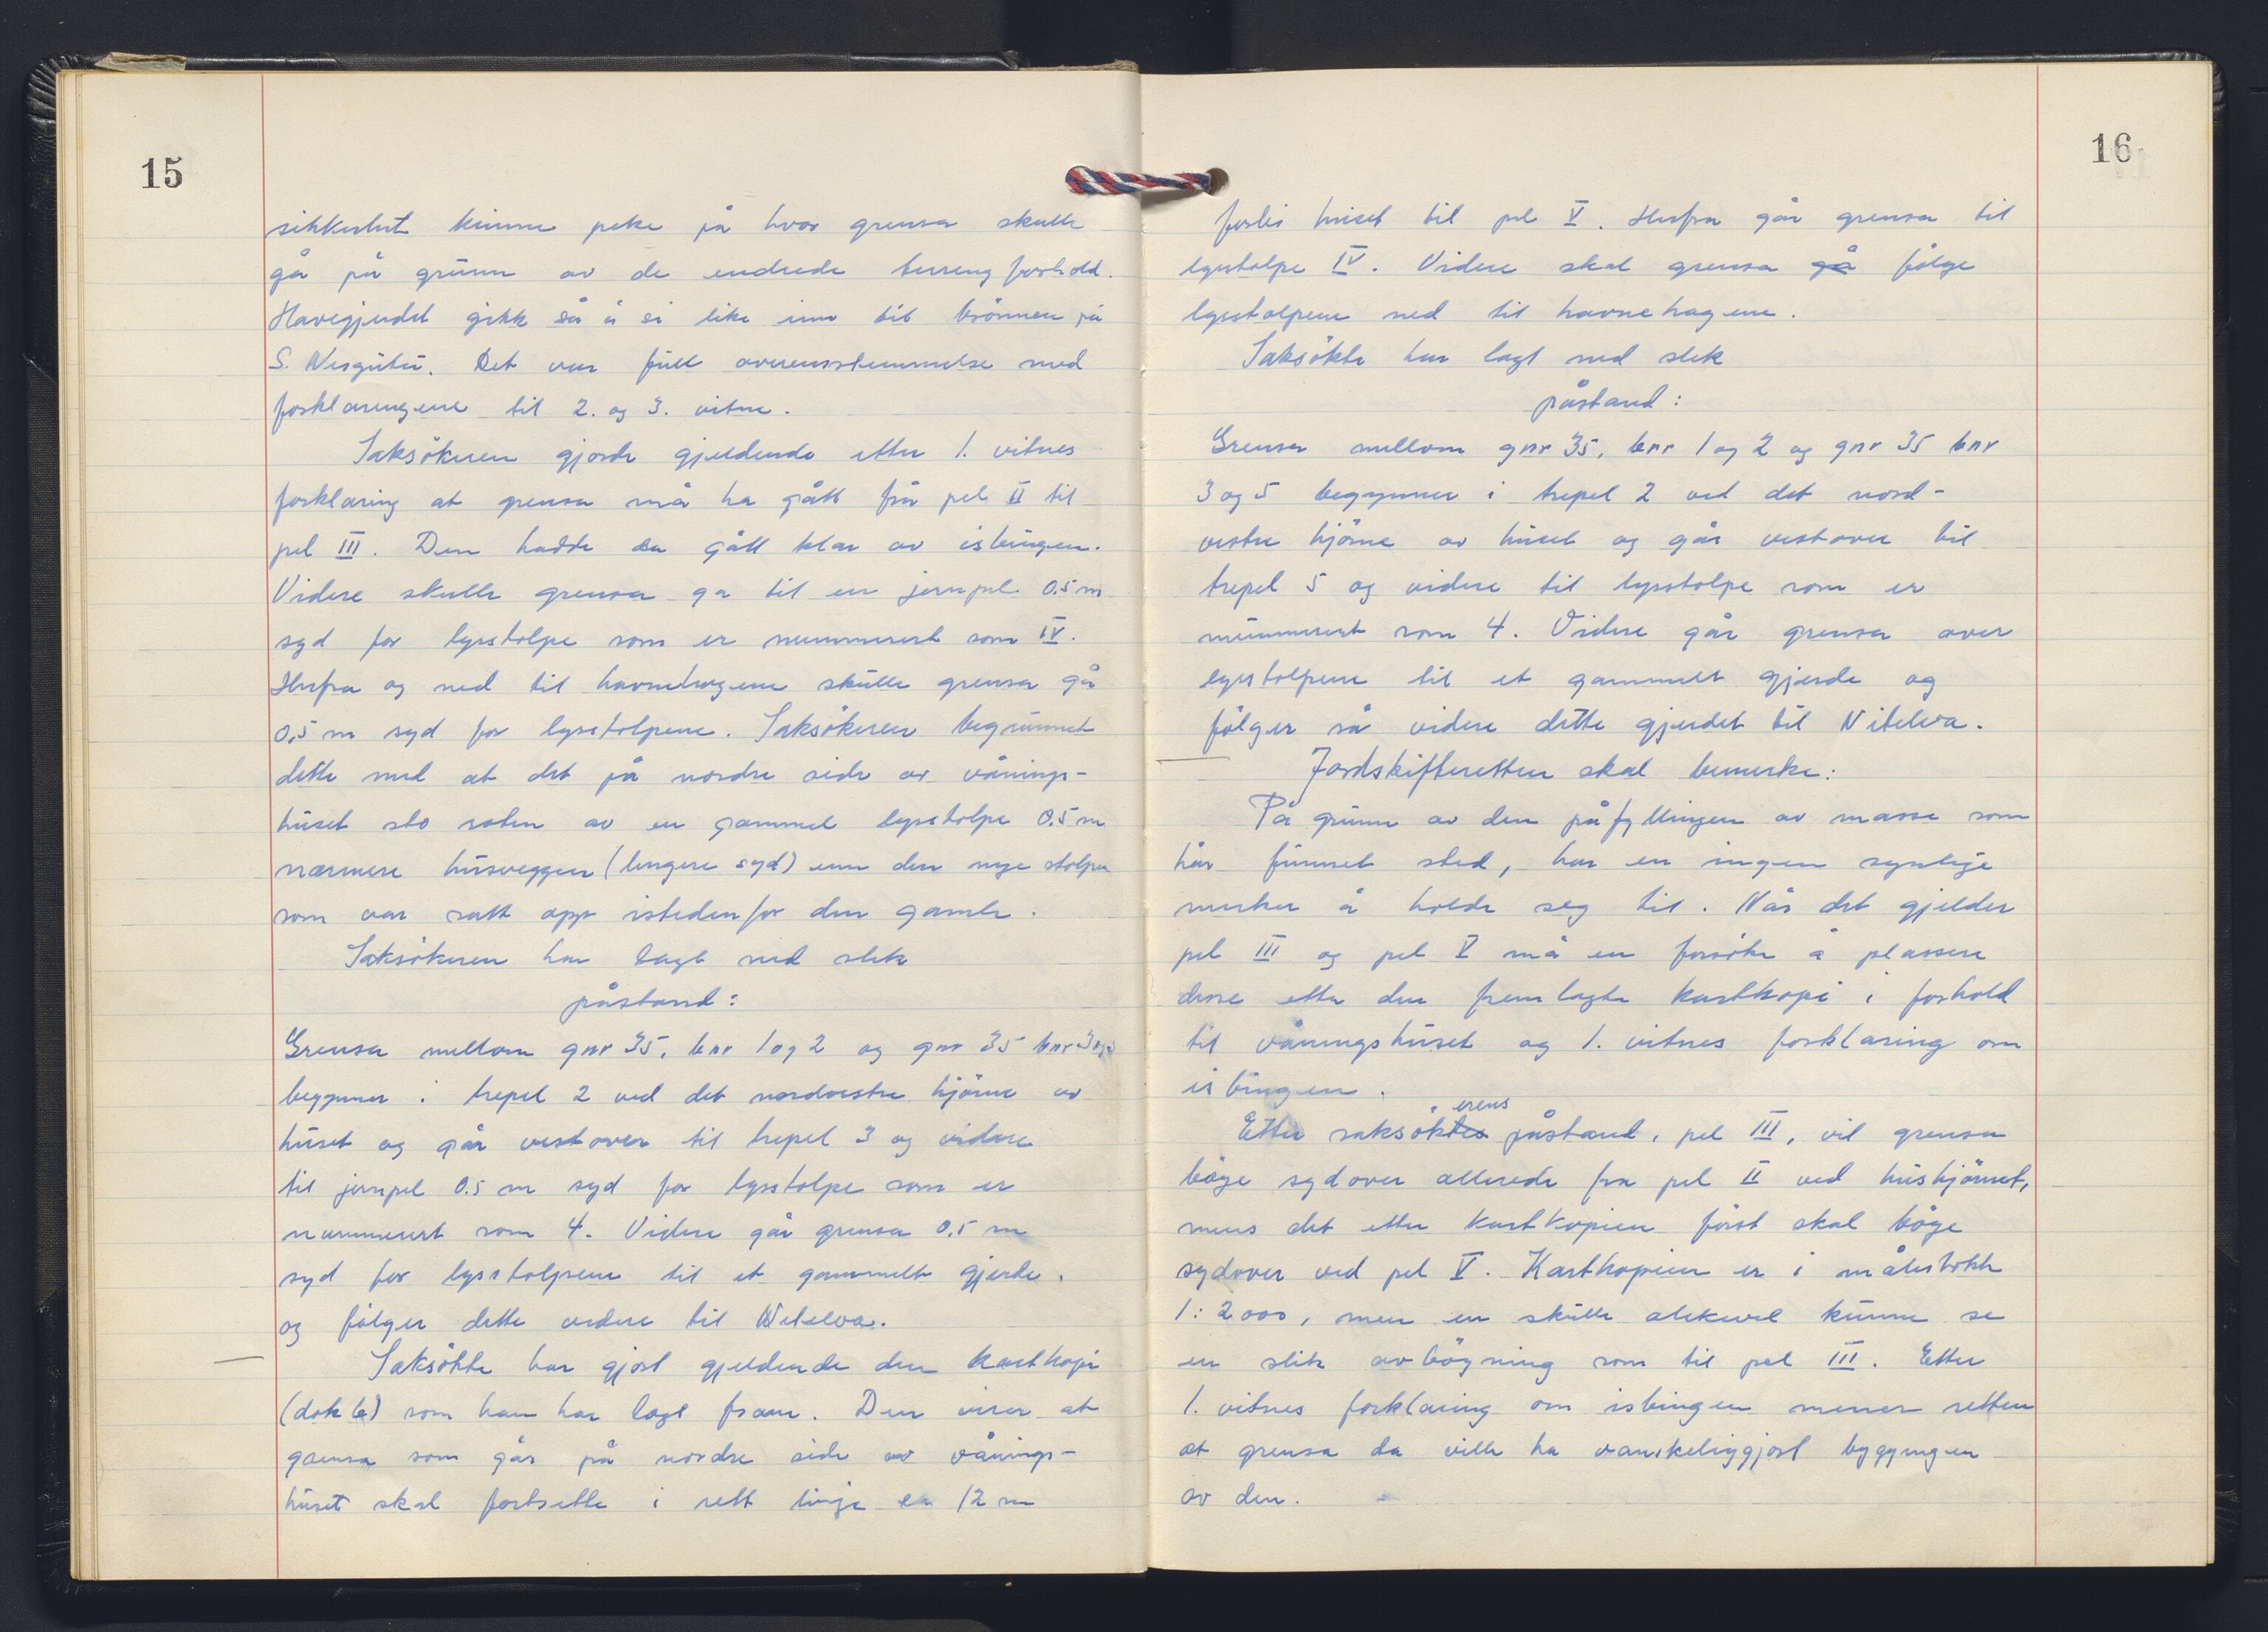 15
sikkerhet kunne peke på hvor grensa skulle
gå på grunn av de endrede terreng forhold.
Havegjerdet gikk så å si like inn til brönnen på
S. Nesgutu. Det var full overensstemmelse med
forklaringene til 2. og 3. vitne.
Saksökeren gjorde gjeldende etter 1. vitnes
forklaring at grensa må ha gått fra pel II til
pel III. Den hadde da gått klar av isbingen.
Videre skulle grensa ga til en jernpel 0.5 m
syd for lysstolpe som er nummerert som IV.
Herfra og ned til havnehagene skulle grensa gå
0,5 m syd for lysstolpene. Saksökeren begrunnet
dette med at det på nordre side av vånings-
huset sto roten av en gammel lysstolpe 0.5 m
nærmere husveggen (lengere syd) enn den nye stolpen
som var satt opp istedenfor den gamle.
Saksökeren har lagt ned slik
påstand:
Grensa mellom gnr 35, bnr 1 og 2 og gnr 35 bnr 3 og 5
begynner i trepel 2 ved det nordvestre hjörne av
huset og går vestover til trepel 3 og videre
til jernpel 0.5 m syd for lysstolpe som er
nummerert som 4. Videre går grensa 0,5 m
syd for lysstolpene til et gammelt gjerde,
og fölger dette videre til Nitelva.
Saksökte har gjort gjeldende den kartkopi
(dok 6) som han har lagt fram. Den viser at
grensa som går på nordre side av vånings-
huset skal fortsette i rett linje ca 12 m
16
forbi huset til pel V. Herfra går grensa til
lysstolpe IV. Videre skal grensa gå fölge
lysstolpene ned til havnehagene.
Saksökte har lagt ned slik
påstand:
Grensa mellom gnr 35, bnr 1 og 2 og gnr 35 bnr
3 og 5 begynner i trepel 2 ved det nord-
vestre hjörne av huset og går vestover til
trepel 5 og videre til lysstolpe som er
nummerert som 4. Videre går grensa over
lysstolpene til et gammelt gjerde og
fölger så videre dette gjerdet til Nitelva.
Jordskifteretten skal bemerke:
På grunn av den påfyllingen av masse som
har funnet sted, har en ingen synlige
merker å holde seg til. Når det gjelder
pel III og pel V må en forsöke å plassere
disse etter den fremlagte kartkopi i forhold
til våningshuset og 1. vitnes forklaring om
isbingen.
Etter saksöktes erens påstand, pel III, vil grensa
böye sydover allerede fra pel II ved hushjörnet,
mens det etter kartkopien först skal böye
sydover ved pel V. Kartkopien er i målestokk
1:2000, men en skulle alikevel kunne se
en slik avböyning som til pel III. Etter
1. vitnes forklaring om isbingen mener retten
at grensa da ville ha vanskeliggjort byggingen
av den.